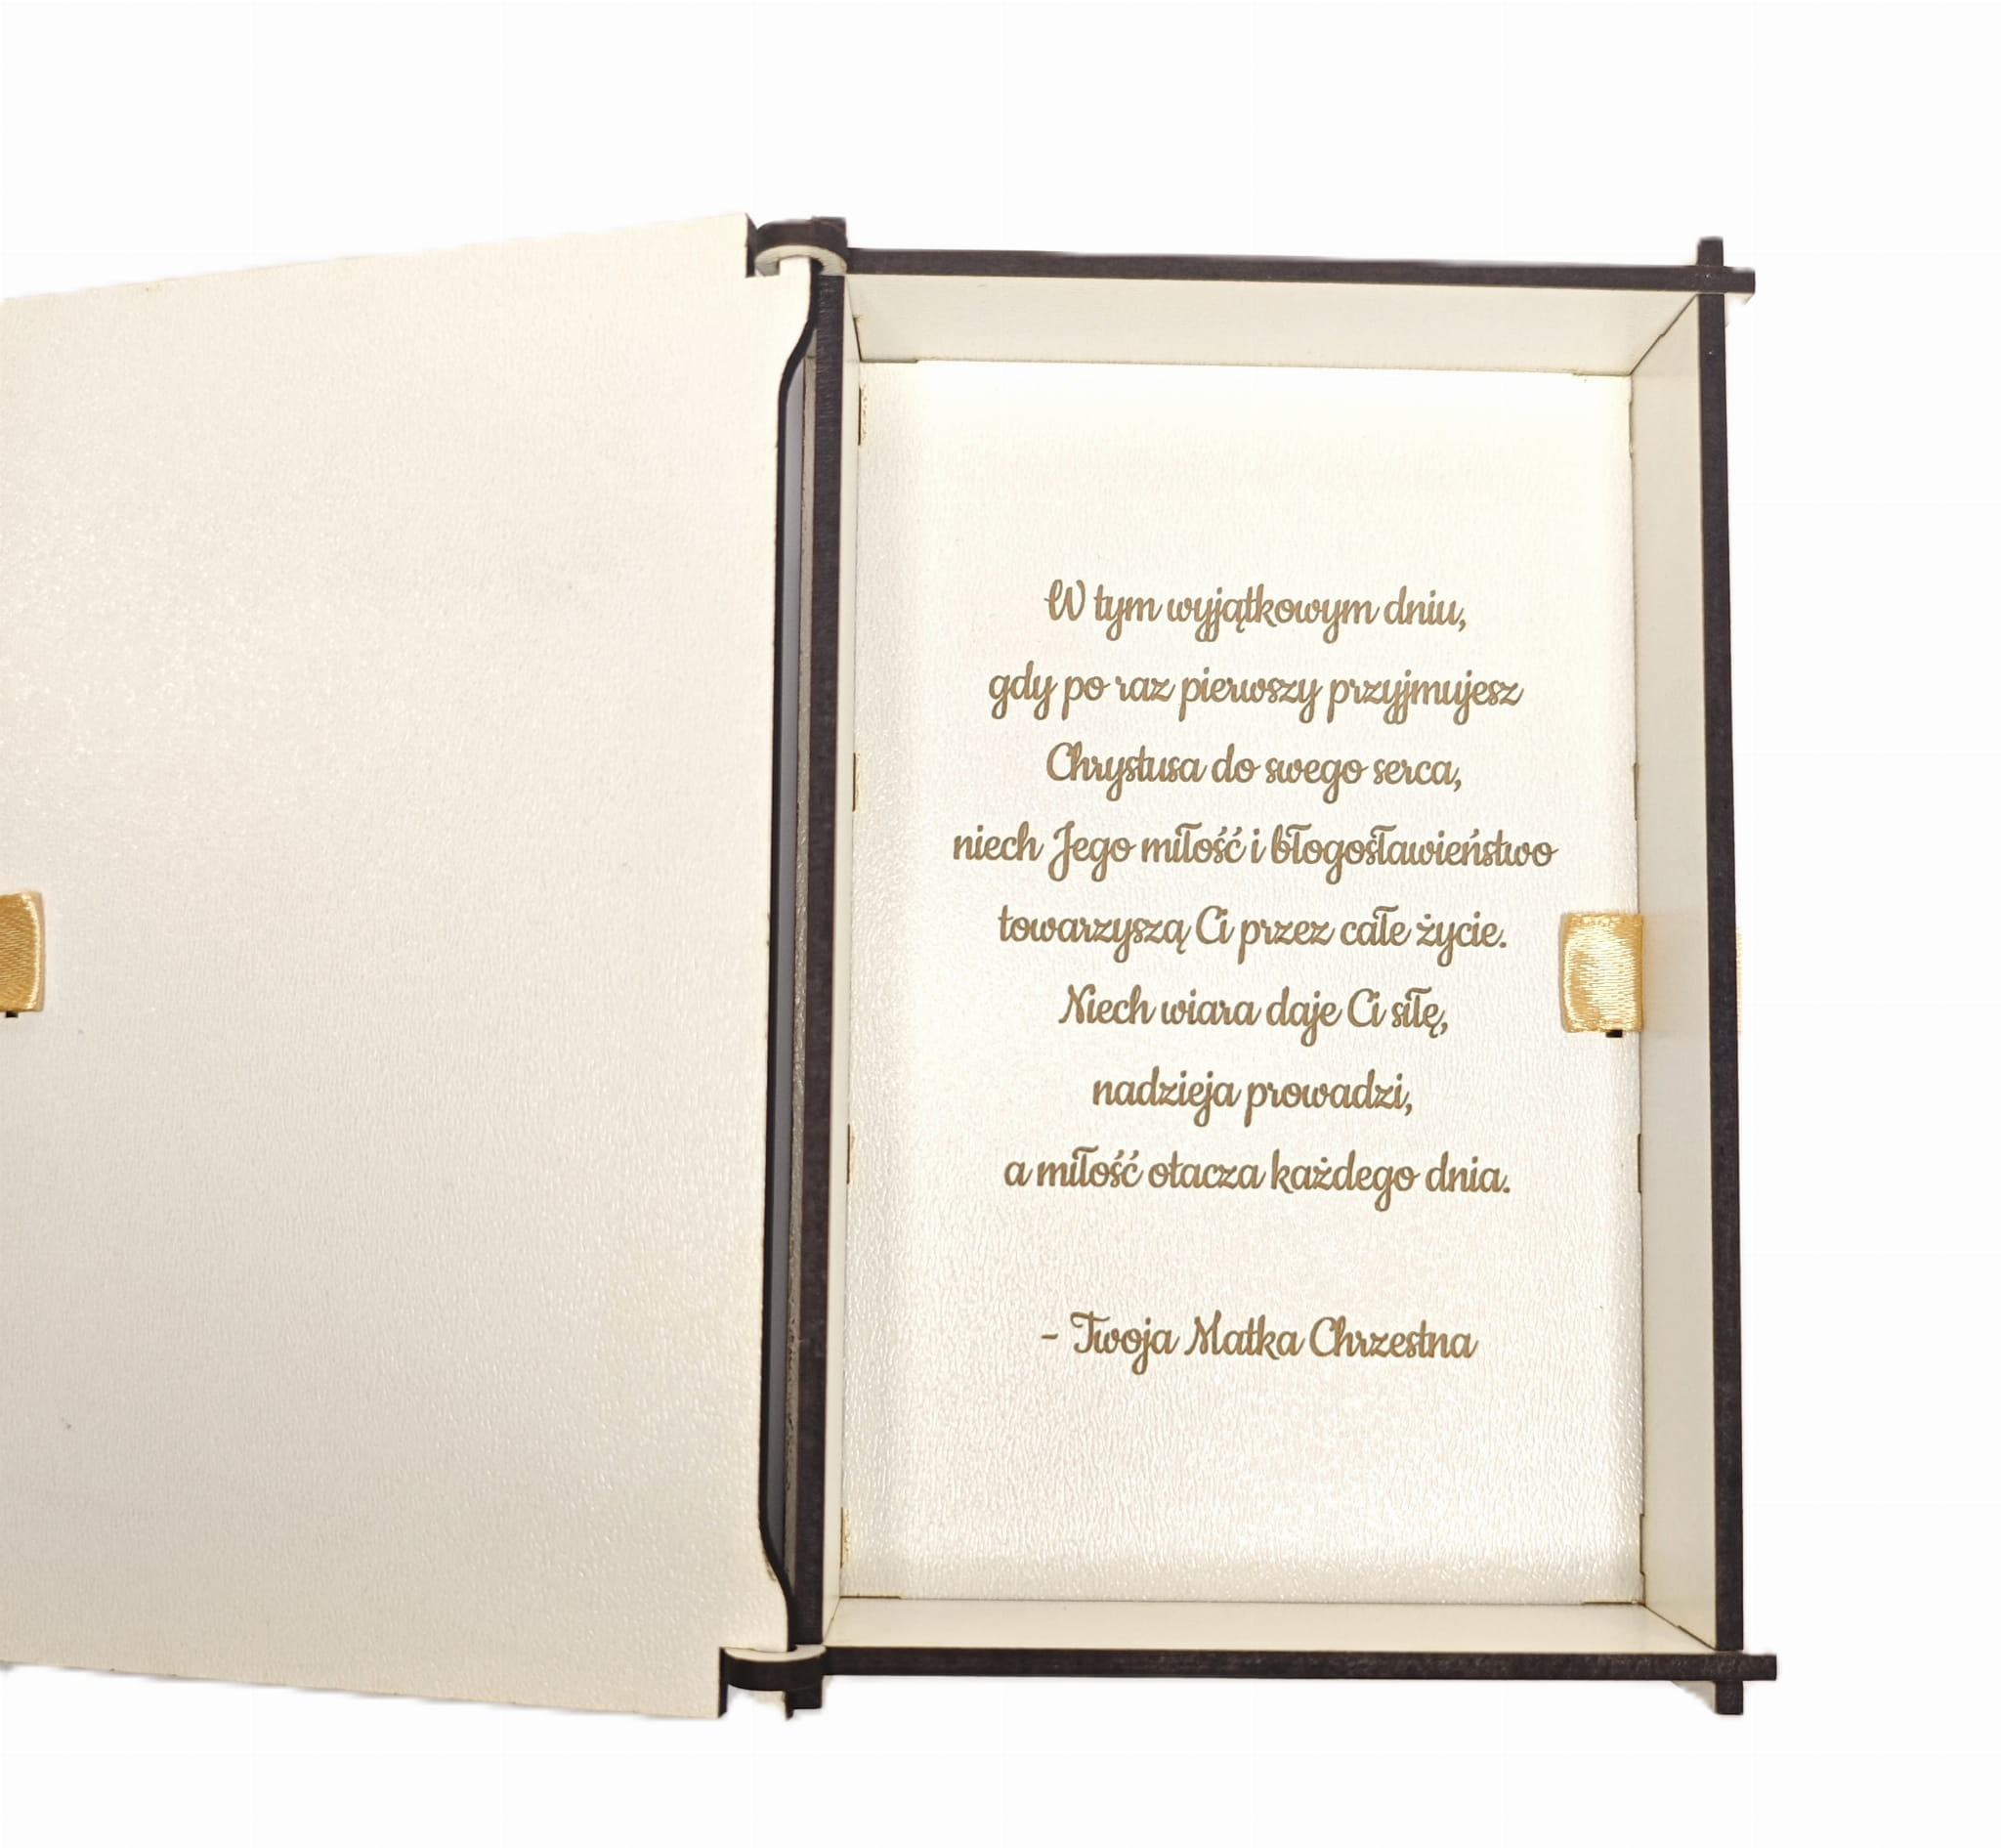 W tym wyjątkowym dniu,
gdy po raz pierwszy przyjmujesz
Chrystusa do swego serca,
niech Jego miłość i błogosławieństwo
towarzyszą Ci przez całe życie.
Niech wiara daje Ci siłę,
nadzieja prowadzi,
a miłość otacza każdego dnia.
- Twoja Matka Chrzestna